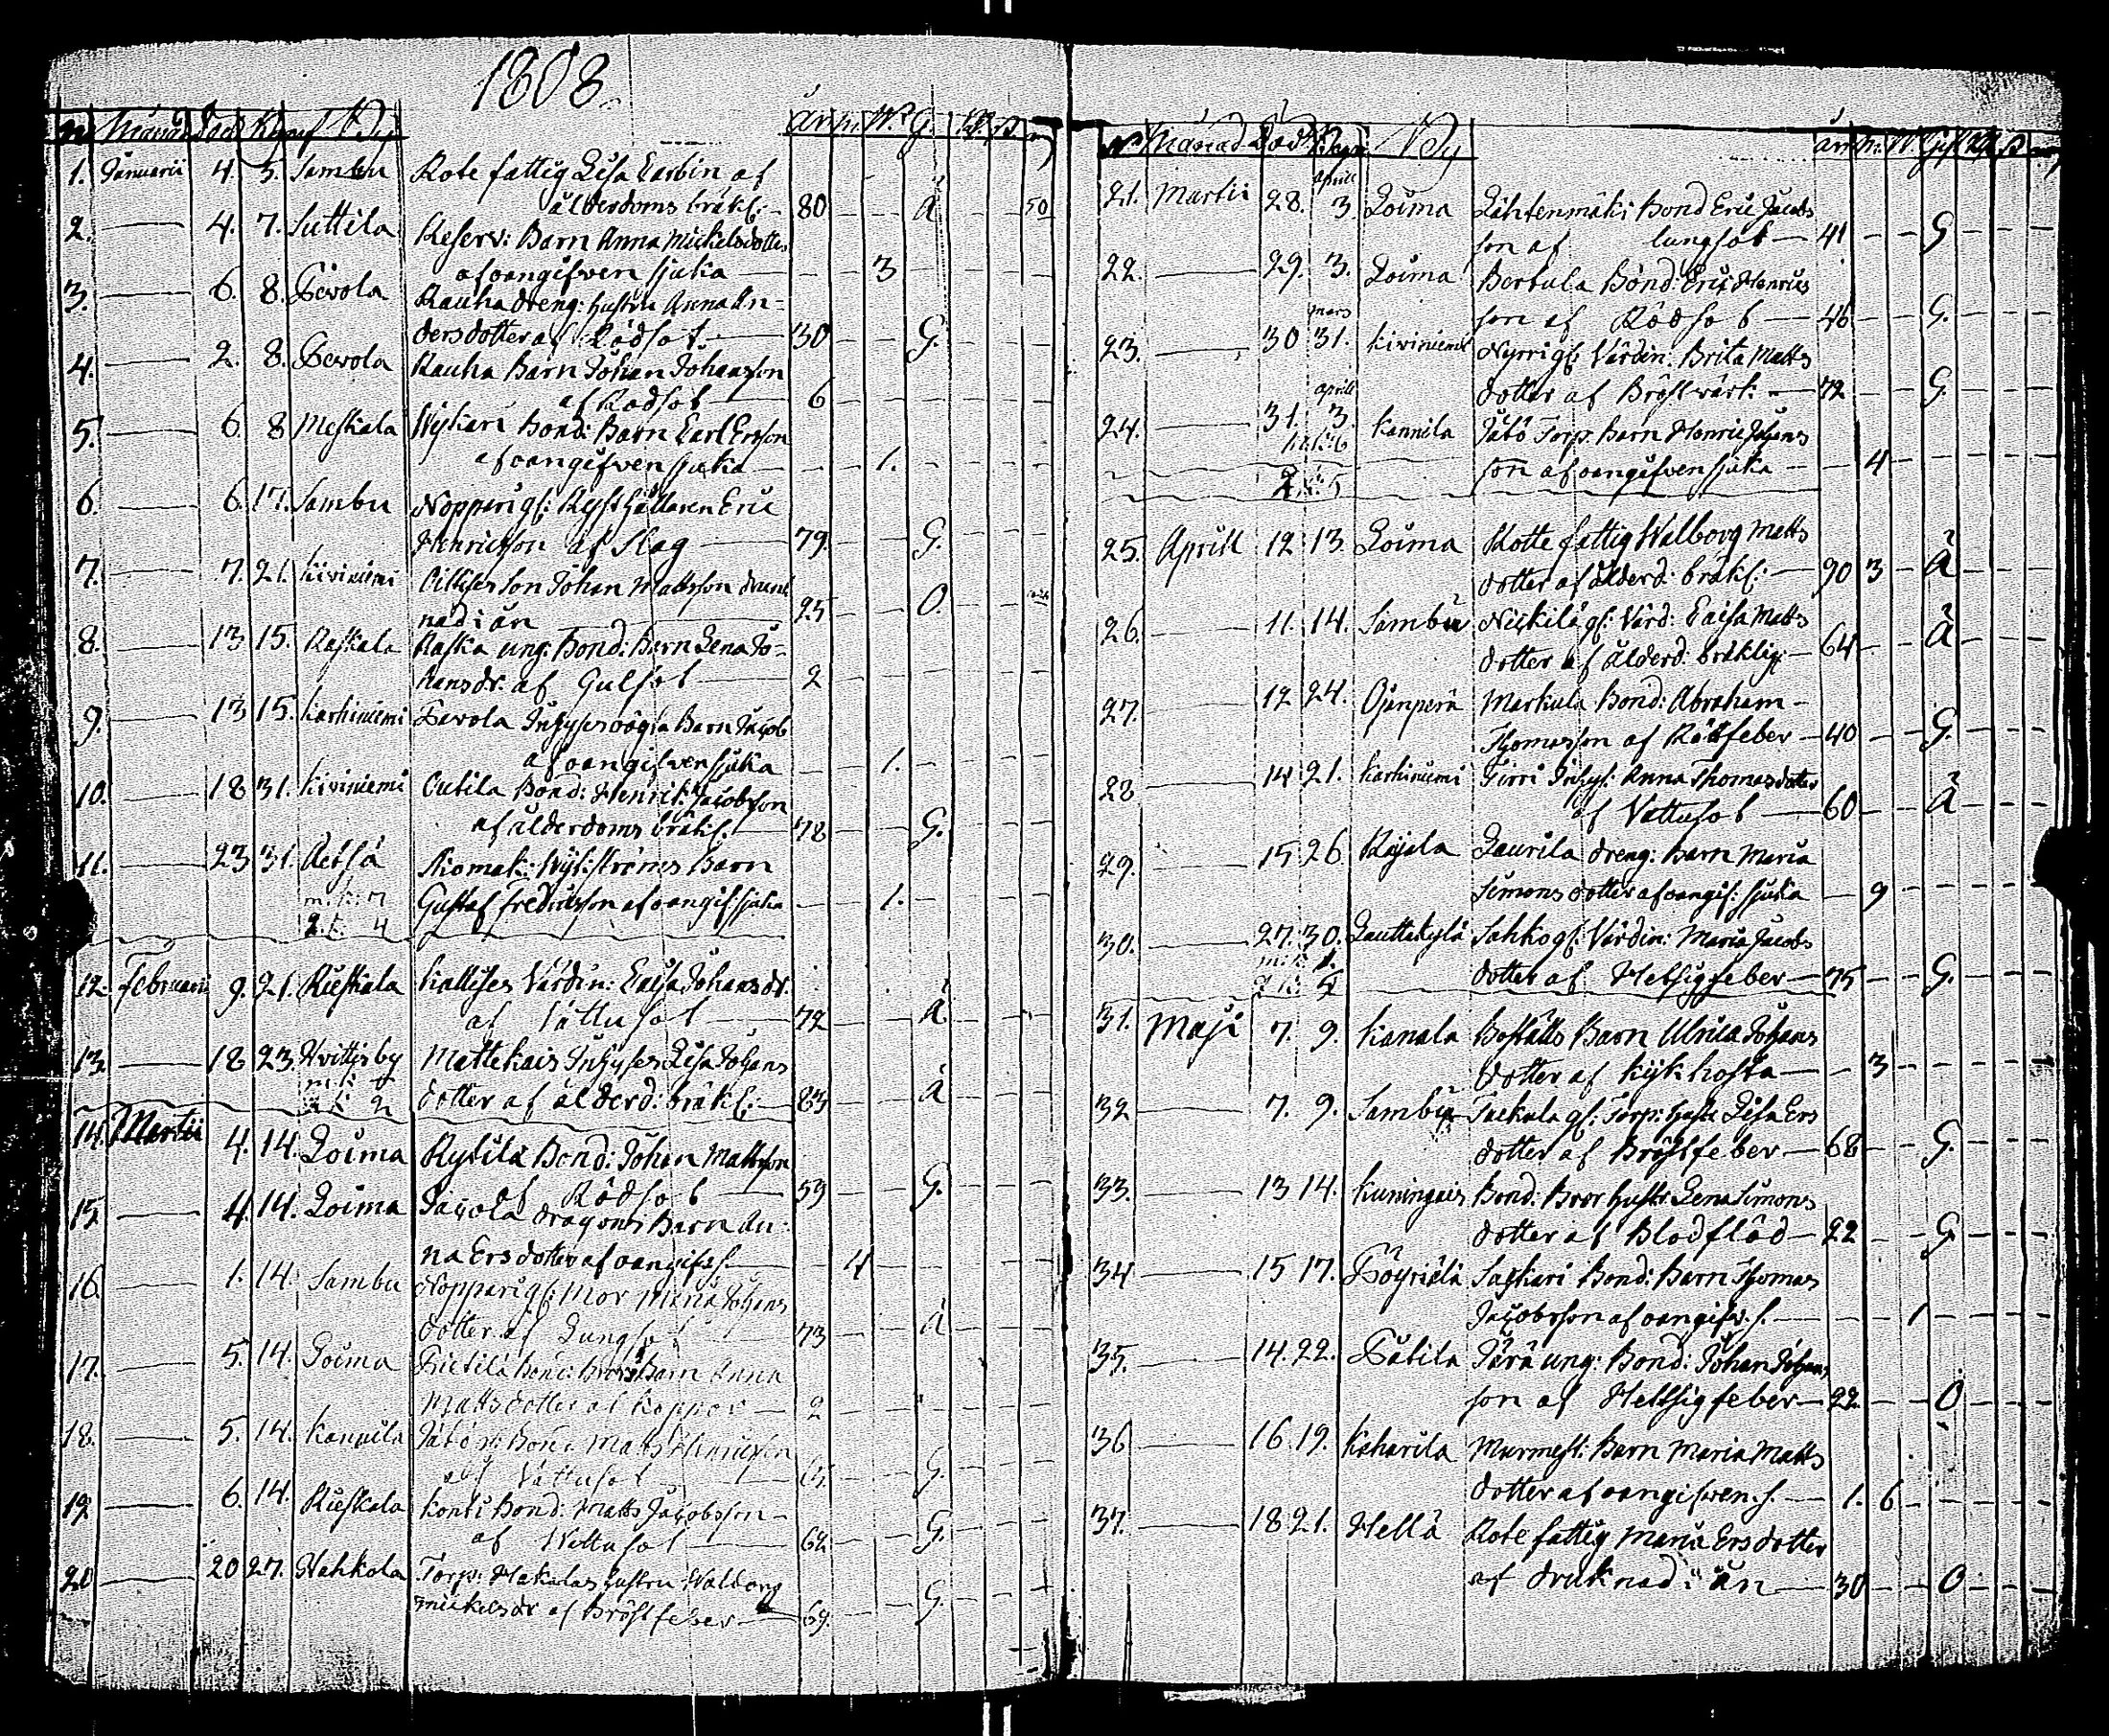 1808
No Månad Död Begraf By år m. W. G.
1. Januarii 4. 5. Sambu Rote fattig Lisa Carbin af
ålderdoms bräkl: 80 Ä 50
2. 4. 7. Suttila Reserv: Barn Anna Mickelsdotter
af oangifwen sjuka 3
3. 6. 8. Fevola Rauha dreng: hustru Anna An-
dersdotter af Rödsot. 30 G.
4. 2. 8. Fevola Rauha Barn Johan Johansson
af Rödsot 6
5. 6. 8 Meskala Wykari Bond: Barn Carl Ersson
af oangifwen sjuka 1.
6. 6. 17. Sambu Nopparigs: Rysthållaren Eric
Henricsson af Slag 79. G.
7. 7. 21. Kiviniemi Son Johan Mattsson drunk
nad i ån 25 O.
8. 13 15. Raskala Raska ung: Bond: Barn Lena Jo-
hansdr. af Gulsot 2
9. 13 15. Karhiniemi Fevola Inhyses Barn Jacob
af oangifwen sjuka 1.
10. 18 31. Kiviniemi Outila Bond: Henrik Jacobsson
af ålderdoms bräkl. 78 G.
11. 23 31. Aetsä Skomak: Wykströms Barn
m.k: 7 Gustaf Fredricsson af oangif: sjuka 1.
q.k: 4
12. Februarii 9. 21. Rieskala Kallises Värdin: Caisa Johansdr.
af Vattusot 72 Ä
13. 18 23. Hvittisby Mattekais Inhyses Lisa Johans
m:k q dotter af ålderd: bräkl: 83 Ä
q:k 2
14. Martii 4. 14. Loima Rytilä Bond: Johan Mattsson
af Rödsot 59 G.
15. 4. 14. Loima Jacola dragons Barn An:
na Ersdotter af oangifs: s. 4
16. 1. 14. Sambu Nopparigs: Mor Maria Johans
dotter af Lungsot 73 Ä
17. 5. 14. Loima Frictilä Bond: Brors Barn Anna
Mattsdotter af Koppor 2
18. 5. 14. Kannila Jätö Bond: Matts Henricsson
af Vattusot G.
19. 6. 14. Rieskala Konti Bond: Matts Jacobsson
af Vattusot 62 G.
20 20 27. Hahkola Torp: Hakalas hustru Walborg
Mickelsdr af Bröstfeber 69. G.
No Månad Död Begr: By år m. W. Gif
Aprill
21. Martii 28. 3. Loima Lähtenmäki Bond Eric Jacobs
son af lungsot 41 G
22. 29. 3. Loima Bertula Bond: Eric Henrics
son af Rödsot 46 G.
mars
23. 30 31. Kiviniemi Nyrrigs Värdin: Brita Matts
dotter af Bröstvärk 72 G.
aprill
24. 31. 3. Kannila Jätö Torp: Barn Henric Johans
m.k: 6 son af oangifwen sjuka 4
q.k: 5
25. Aprill 12 13. Loima Rotte fattig Walborg Matts
dotter af ålderd: bräkl: 90 3 Ä
26. 11. 14. Sambu Nickiläs: Värd: Caisa Matts
dotter af ålderd: bräklig: 64 Ä
27. 12 24. Ojanperä Markula Bond: Abraham
Thomasson af Rötfeber 40 G.
28 14 21. Karhiniemi Firri Inhys: Anna Thomasdotter
af Vattusot 60 Ä
29. 15 26 Rajala Laurila dreng: Barn Maria
Simonsdotter af oangif: sjuka 9
30. 27. 30. Lauttakylä Sahkogs: Värdin: Maria Jacobs
m:k 1. dotter af Hetsigfeber 75 G.
q k: 5
31. Maji 7. 9. Kanala Boställs Barn Ulrica Johans
dotter af Kykhosta 3
32 7. 9. Sambu Jackala gs: Torp: hustr Lisa Ers
dotter af Bröstfeber 68 G.
33. 13 14. Kuningais Bond: Bror hustr: Lena Simons
dotter af Blodflöd 22 G
34 15 17. Föyriälä Saskari Bond: Barn Thomas
Jacobsson af oangifv. s. 1
35. 14. 22. Fätila Järä ung: Bond: Johan Johans
son af Hettsigfeber 22. O
36 16. 19. Kaharila Murmest: Barn Maria Matts
dotter af oangifwen. s. 1. 6
37. 18 21. Hellä Rote fattig Maria Ersdotter
af druknad i ån 30 O